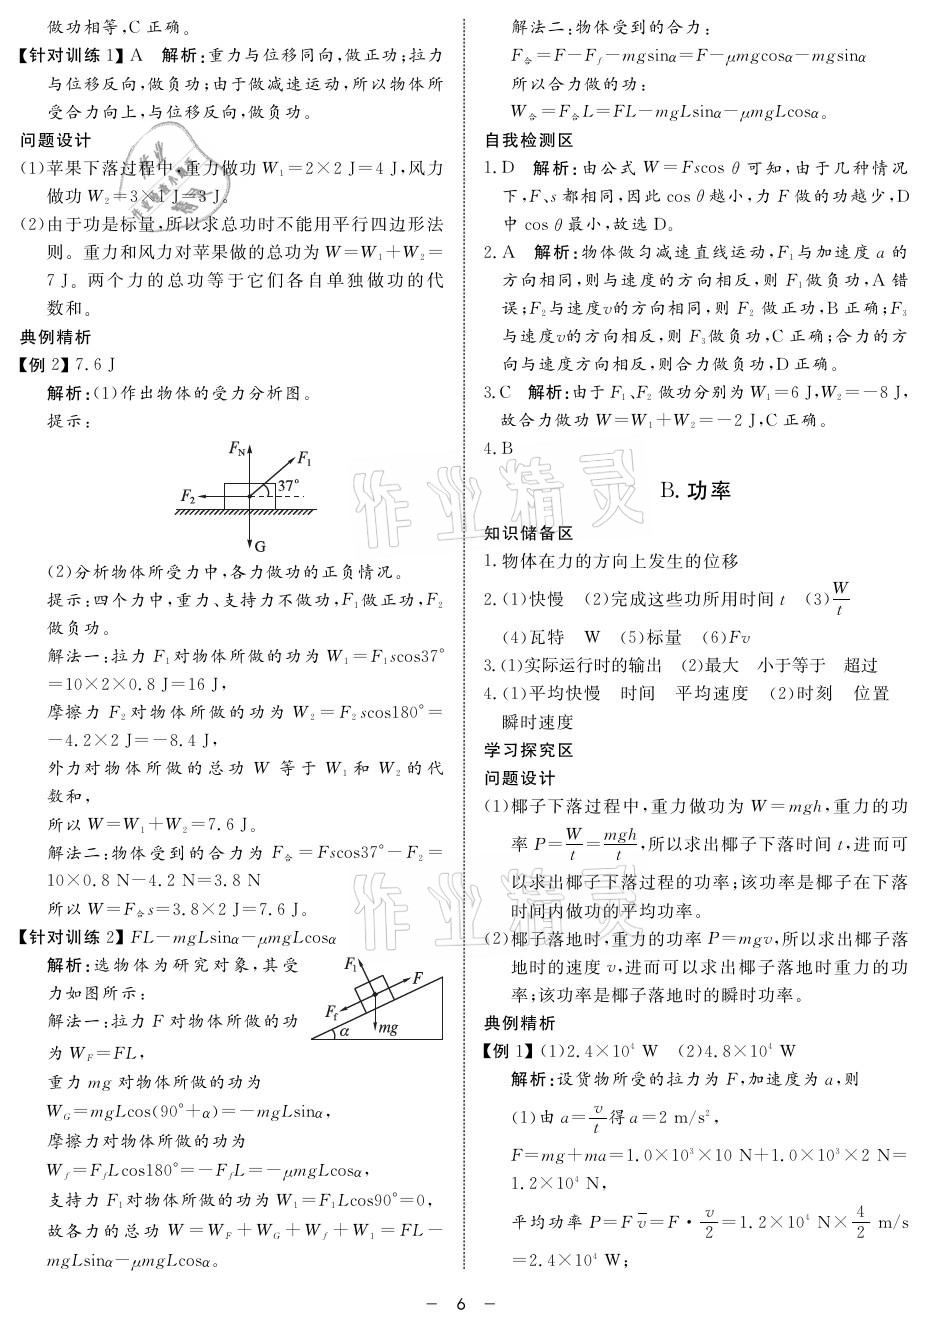 做功相等,C 正确。
【针对训练 1】A　解析:重力与位移同向,做正功;拉力
与位移反向,做负功;由于做减速运动,所以物体所
受合力向上,与位移反向,做负功。
问题设计
(1)苹果下落过程中,重力做功 W₁=2×2 J=4 J,风力
做功 W₂=3×1 J=3 J。
(2)由于功是标量,所以求总功时不能用平行四边形法
则。重力和风力对苹果做的总功为 W=W₁+W₂=
7 J。两个力的总功等于它们各自单独做功的代
数和。
典例精析
【例 2】7.6 J
解析:(1)作出物体的受力分析图。
提示:
F_N
F₁
37°
F₂
G
(2)分析物体所受力中,各力做功的正负情况。
提示:四个力中,重力、支持力不做功,F₁做正功,F₂
做负功。
解法一:拉力 F₁对物体所做的功为 W₁=F₁scos37°
=10×2×0.8 J=16 J,
摩擦力 F₂对物体所做的功为 W₂=F₂scos180°=
-4.2×2 J=-8.4 J,
外力对物体所做的总功 W 等于 W₁和 W₂的代
数和,
所以 W=W₁+W₂=7.6 J。
解法二:物体受到的合力为 F合=Fscos37°-F₂=
10×0.8 N-4.2 N=3.8 N
所以 W=F合s=3.8×2 J=7.6 J。
【针对训练 2】FL-mgLsinα-μmgLcosα
解析:选物体为研究对象,其受
力如图所示:
解法一:拉力 F 对物体所做的功
为 W_F=FL,
F₁
F
F_f
mg
α
重力 mg 对物体所做的功为
W_G=mgLcos(90°+α)=-mgLsinα,
摩擦力对物体所做的功为
W_f=F_fLcos180°=-F_fL=-μmgLcosα,
支持力 F₁对物体所做的功为 W₁=F₁Lcos90°=0,
故各力的总功 W=W_F+W_G+W_f+W₁=FL-
mgLsinα-μmgLcosα。
解法二:物体受到的合力:
F合=F-F_f-mgsinα=F-μmgcosα-mgsinα
所以合力做的功:
W合=F合L=FL-mgLsinα-μmgLcosα。
自我检测区
1.D　解析:由公式 W=Fscos θ 可知,由于几种情况
下,F、s 都相同,因此 cos θ 越小,力 F 做的功越少,D
中 cos θ 最小,故选 D。
2.A　解析:物体做匀减速直线运动,F₁与加速度 a 的
方向相同,则与速度的方向相反,则 F₁做负功,A 错
误;F₂与速度v的方向相同,则 F₂ 做正功,B 正确;F₃
与速度v的方向相反,则 F₃做负功,C 正确;合力的方
向与速度方向相反,则合力做负功,D 正确。
3.C　解析:由于 F₁、F₂ 做功分别为 W₁=6 J,W₂=-8 J,
故合力做功 W=W₁+W₂=-2 J,C 正确。
4.B
B.功率
知识储备区
1.物体在力的方向上发生的位移
2.(1)快慢　(2)完成这些功所用时间 t　(3)W/t
(4)瓦特　W　(5)标量　(6)Fv
3.(1)实际运行时的输出　(2)最大　小于等于　超过
4.(1)平均快慢　时间　平均速度　(2)时刻　位置
瞬时速度
学习探究区
问题设计
(1)椰子下落过程中,重力做功为 W=mgh,重力的功
率 P=W/t=mgh/t,所以求出椰子下落时间 t,进而可
以求出椰子下落过程的功率;该功率是椰子在下落
时间内做功的平均功率。
(2)椰子落地时,重力的功率 P=mgv,所以求出椰子落
地时的速度 v,进而可以求出椰子落地时重力的功
率;该功率是椰子落地时的瞬时功率。
典例精析
【例 1】(1)2.4×10⁴ W　(2)4.8×10⁴ W
解析:设货物所受的拉力为 F,加速度为 a,则
(1)由 a=v/t得 a=2 m/s²,
F=mg+ma=1.0×10³×10 N+1.0×10³×2 N=
1.2×10⁴ N,
平均功率 P=F v̄=F·v/2=1.2×10⁴ N×4/2 m/s
=2.4×10⁴ W;
- 6 -
作业精灵
作业精灵